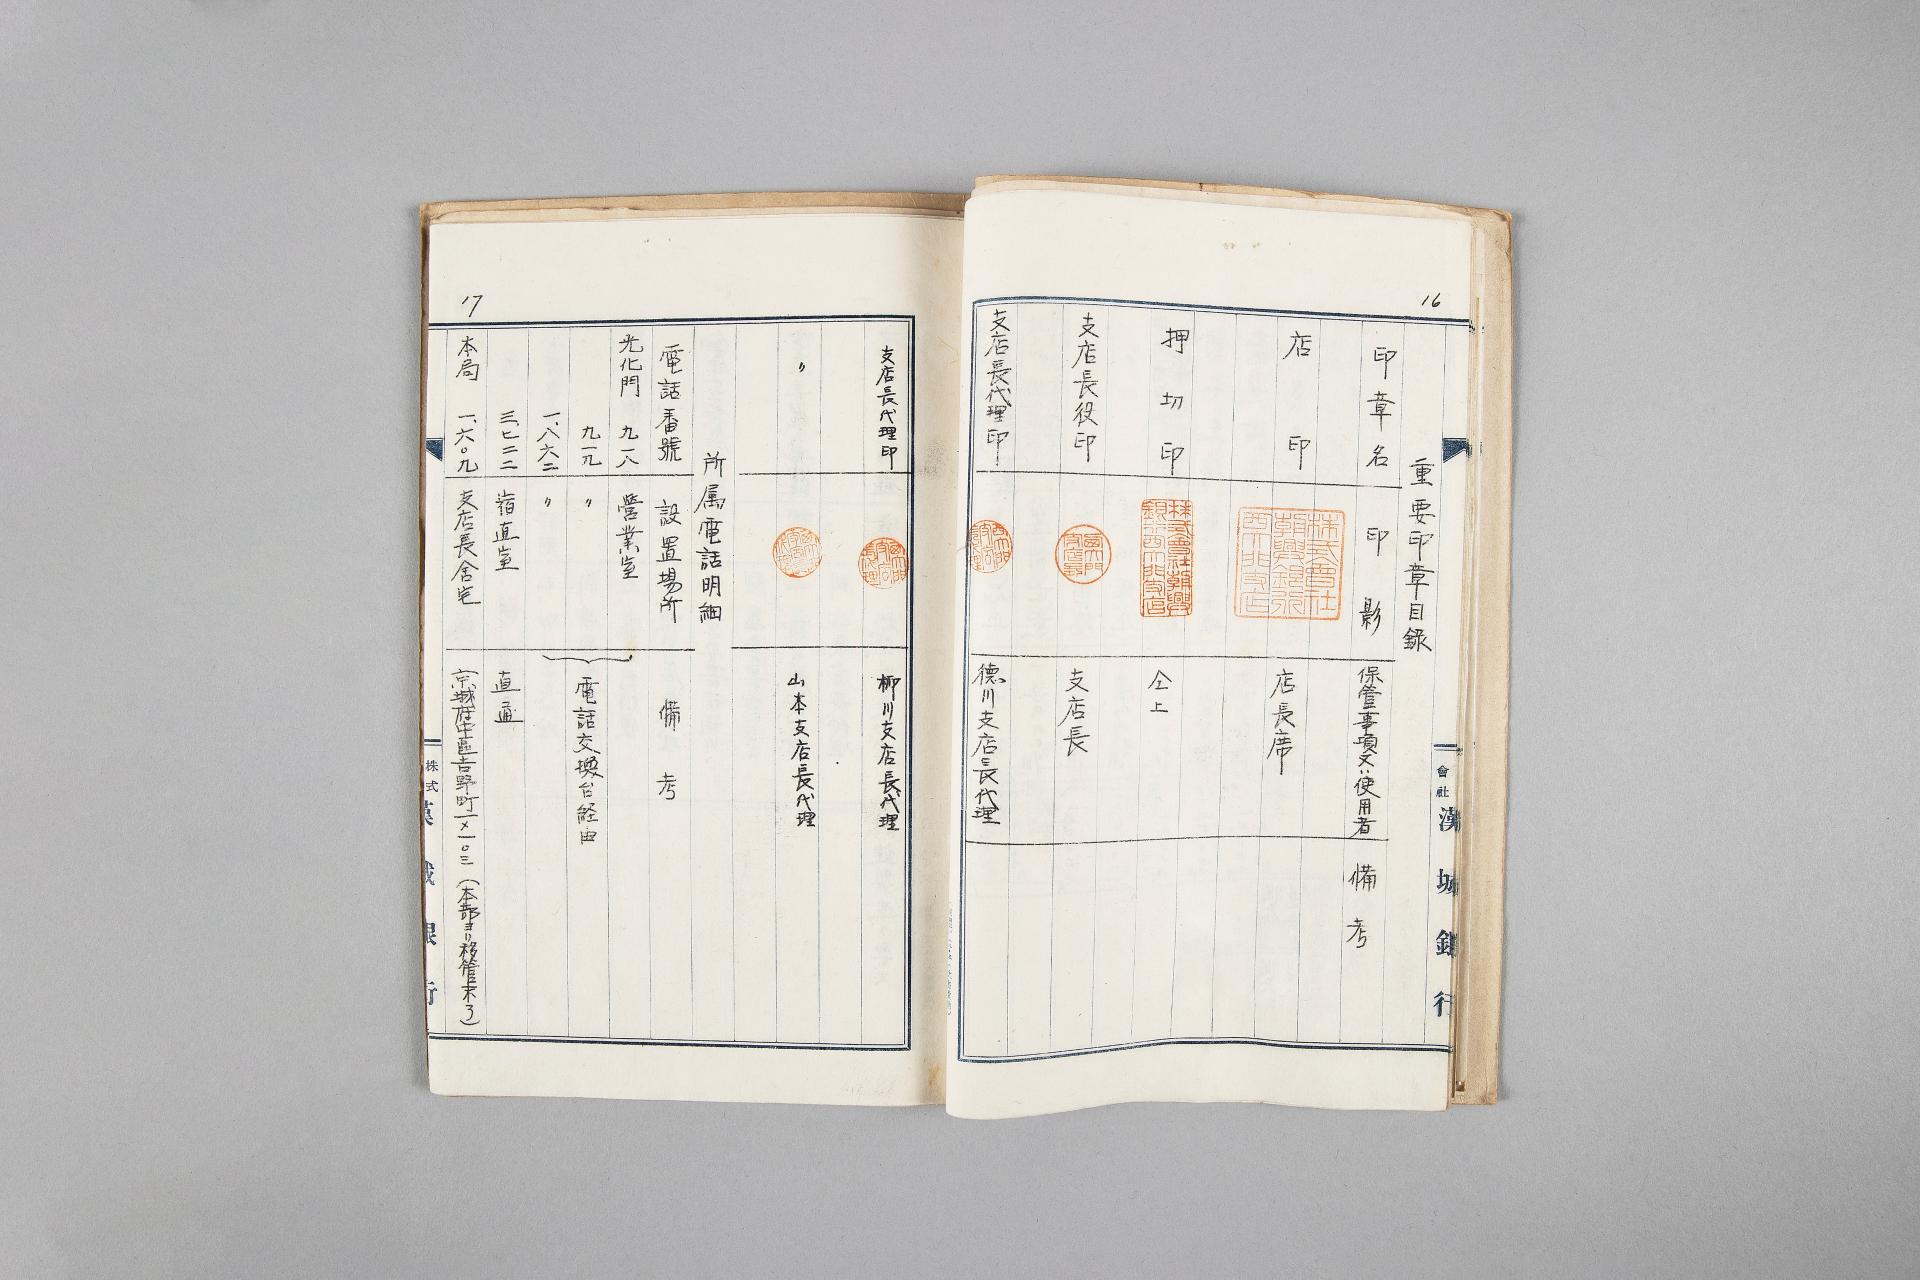 16
重要印章目錄
印章名 印影 保管事項又ハ使用者 備考
店印 株式會社朝興銀行西大門支店 店長席
押切印 株式會社朝興銀行西大門支店 仝上
支店長役印 支店長
支店長代理印 德川支店長代理
會社 漢城銀行
17
支店長代理印 柳川支店長代理
〃 山本支店長代理
所属電話明細
電話番號 設置場所 備考
光化門 九一八 營業室
九一九 〃
一、八六二 〃
電話交換台経由
三、七二二 宿直室 直通
本局 一、六〇九 支店長舍宅 京城府中區吉野町一ノ一〇三(本部ヨリ移管未了)
株式 漢城銀行